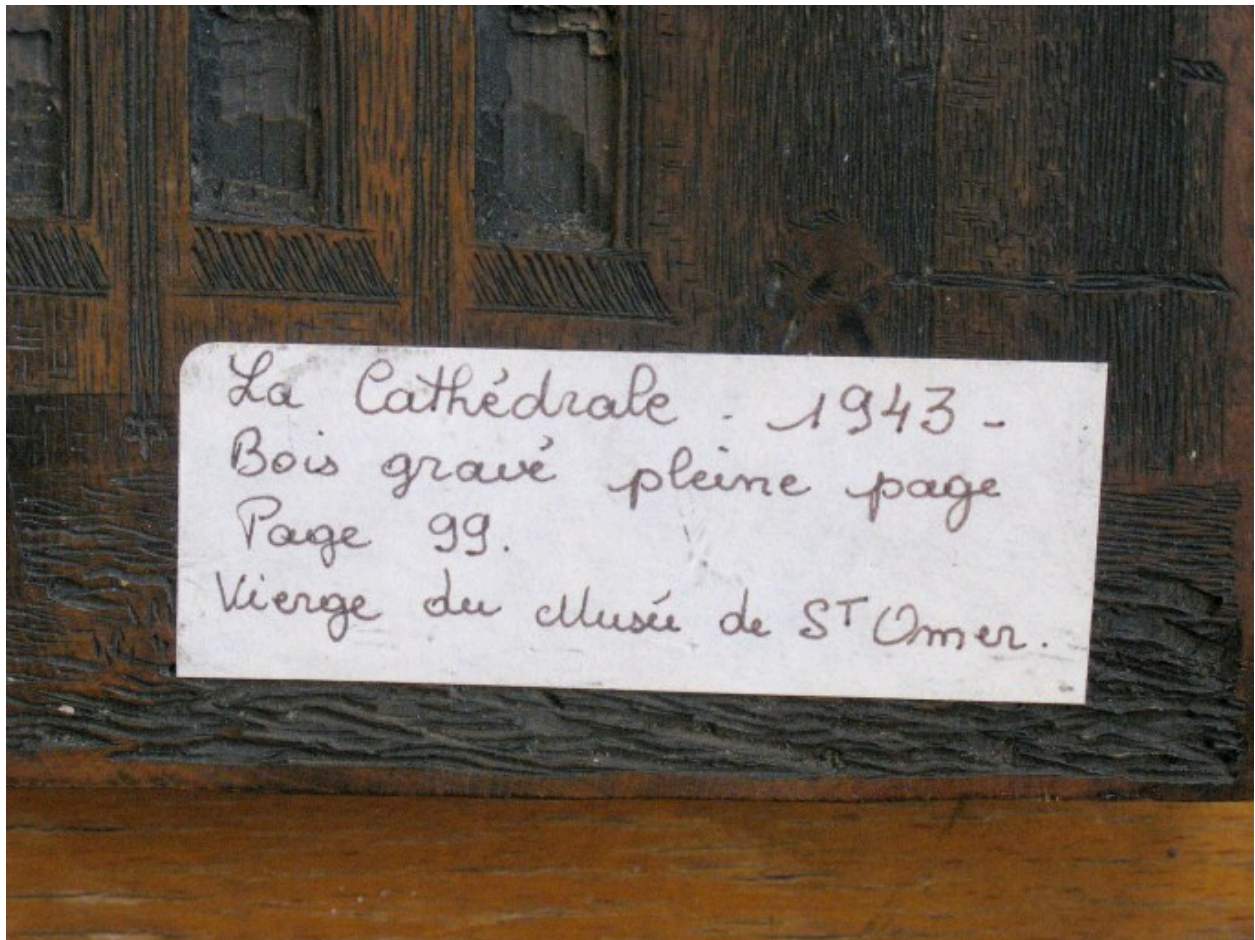 La Cathédrale . 1943 -
Bois gravé pleine page
Page 99.
Vierge du Musée de ST Omer.